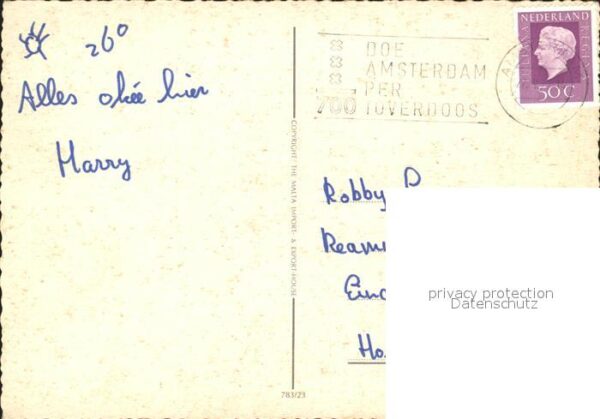 26°
Alles okée hier
Harry
DOE
AMSTERDAM
PER
TOVERDOOS
700
NEDERLAND
JULIANA REGINA
50 C
COPYRIGHT: THE MALTA IMPORT- & EXPORT-HOUSE
783/23
Robby
privacy protection
Datenschutz